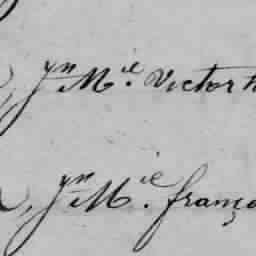 , Jn Mie. Victor
, Jn Mie. franço